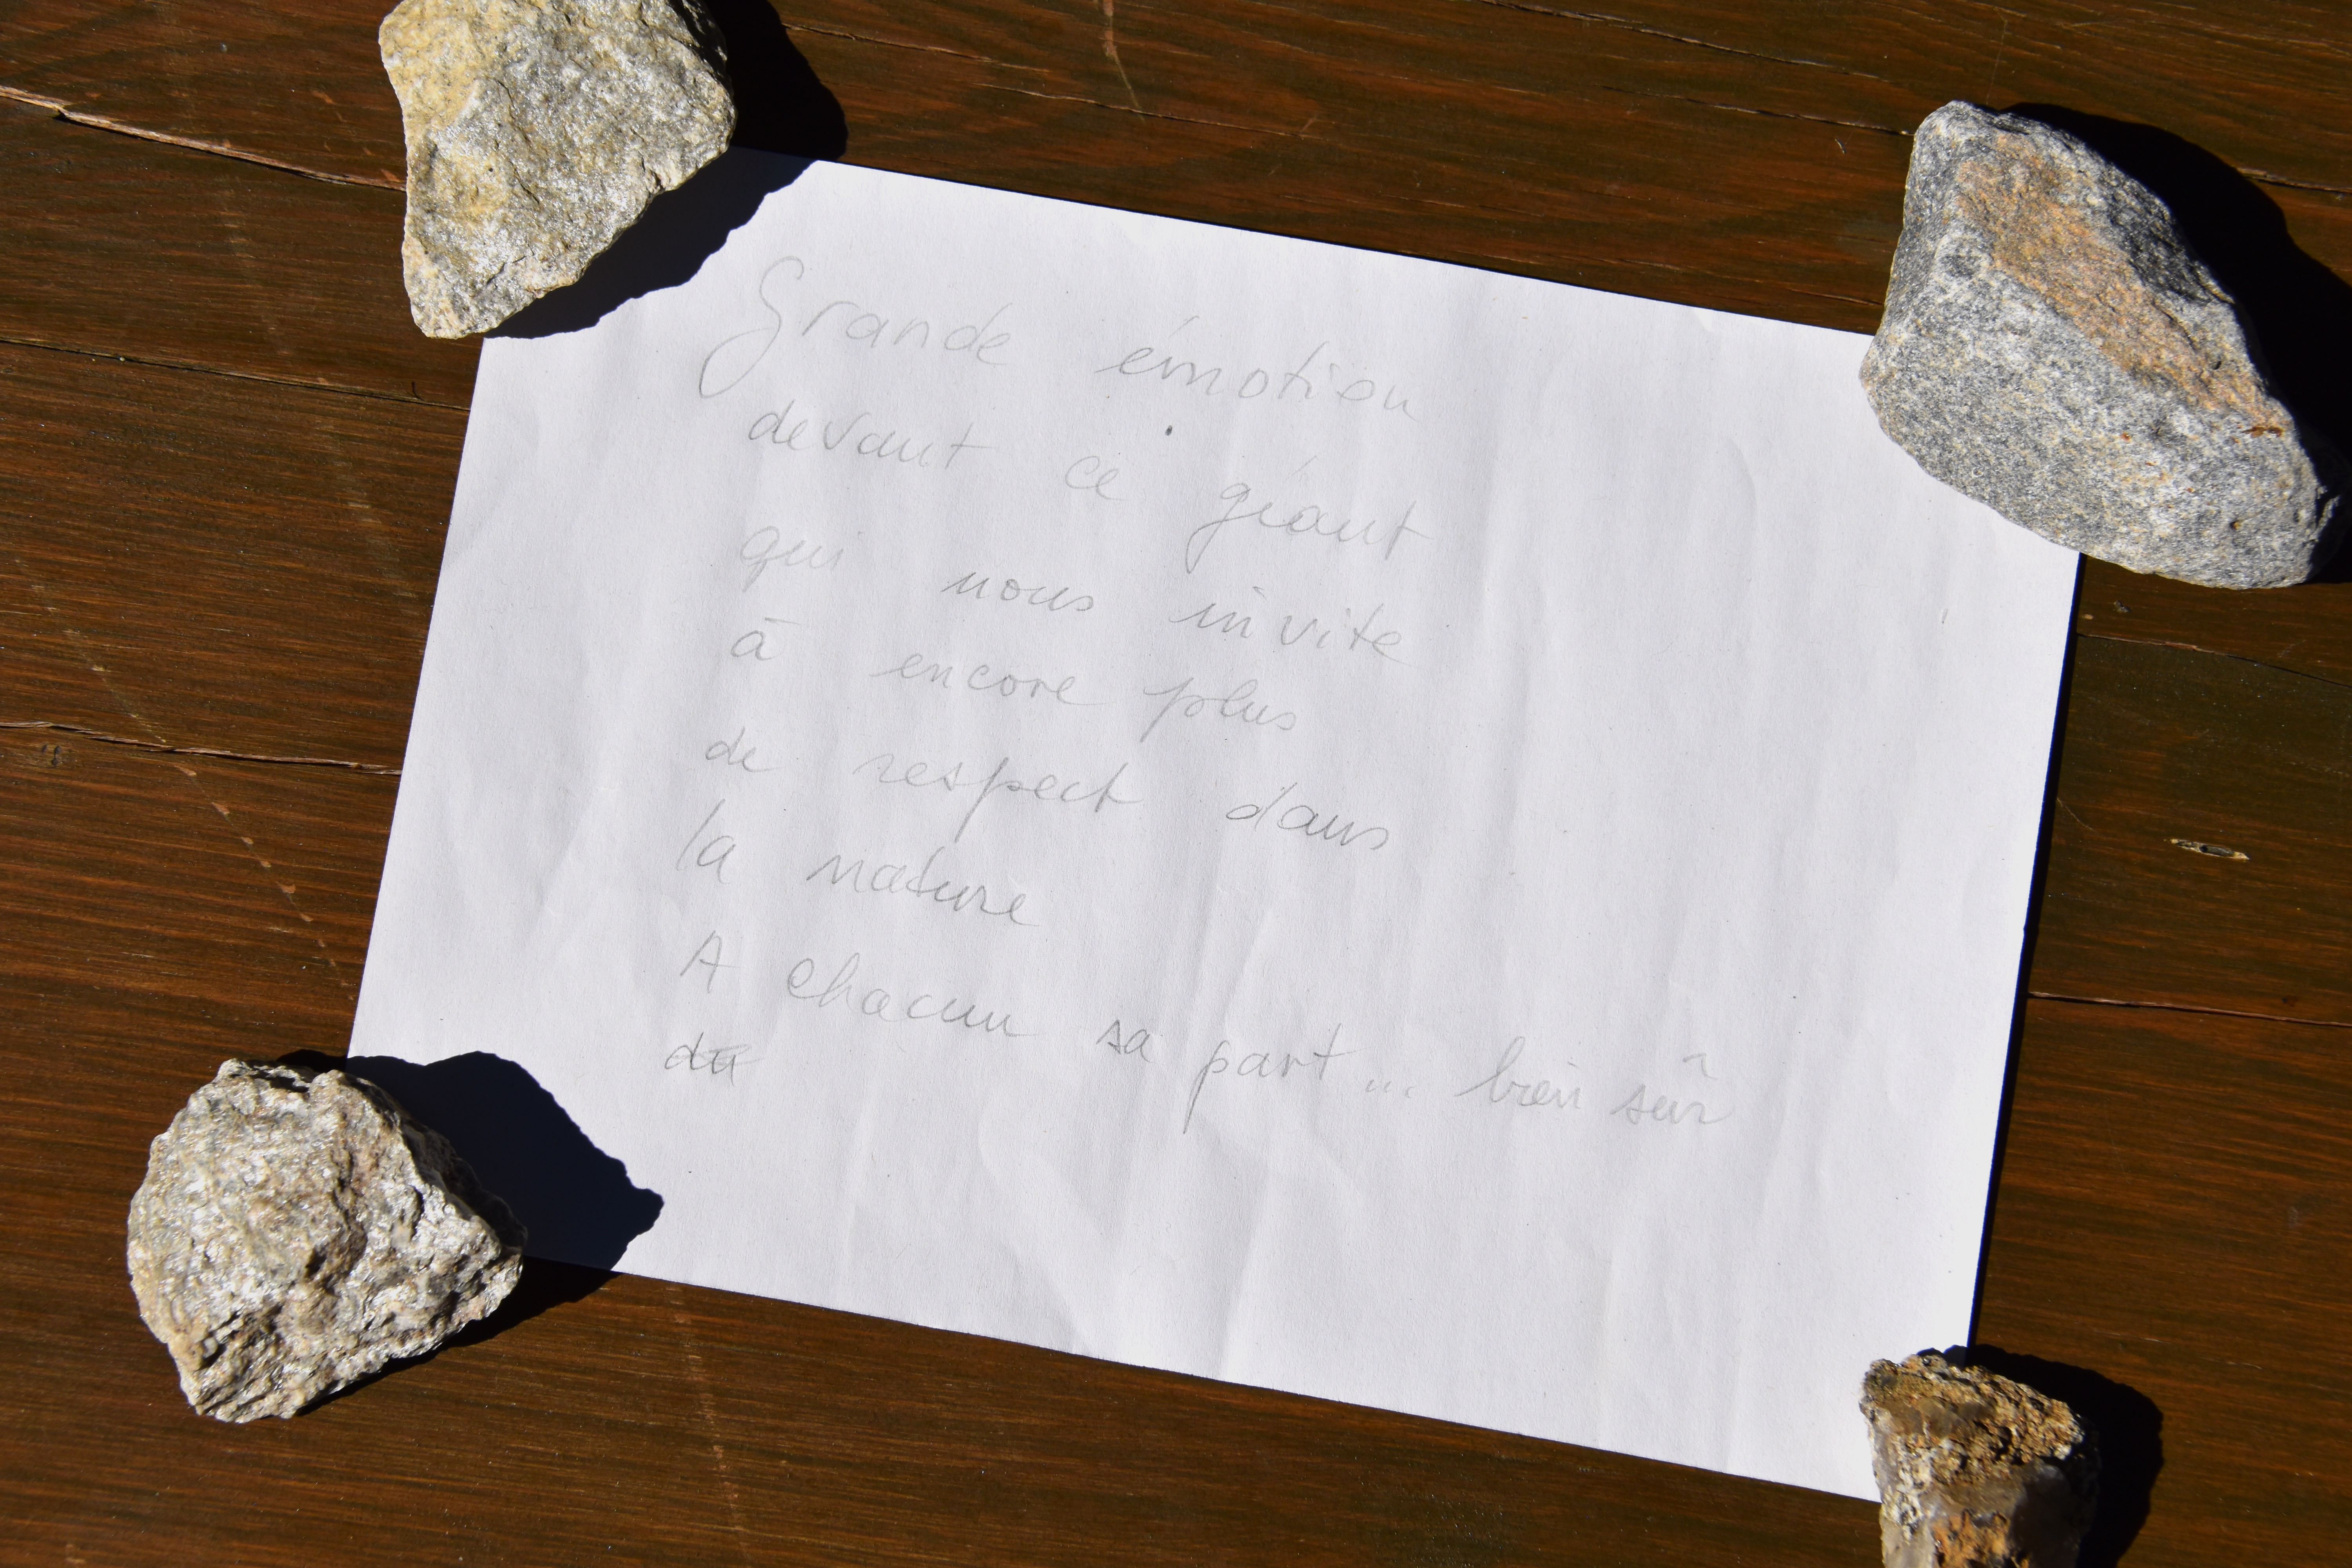 Grande émotion
devant ce géant
qui nous invite
à encore plus
de respect dans
la nature
A chacun sa part... bien sûr
du